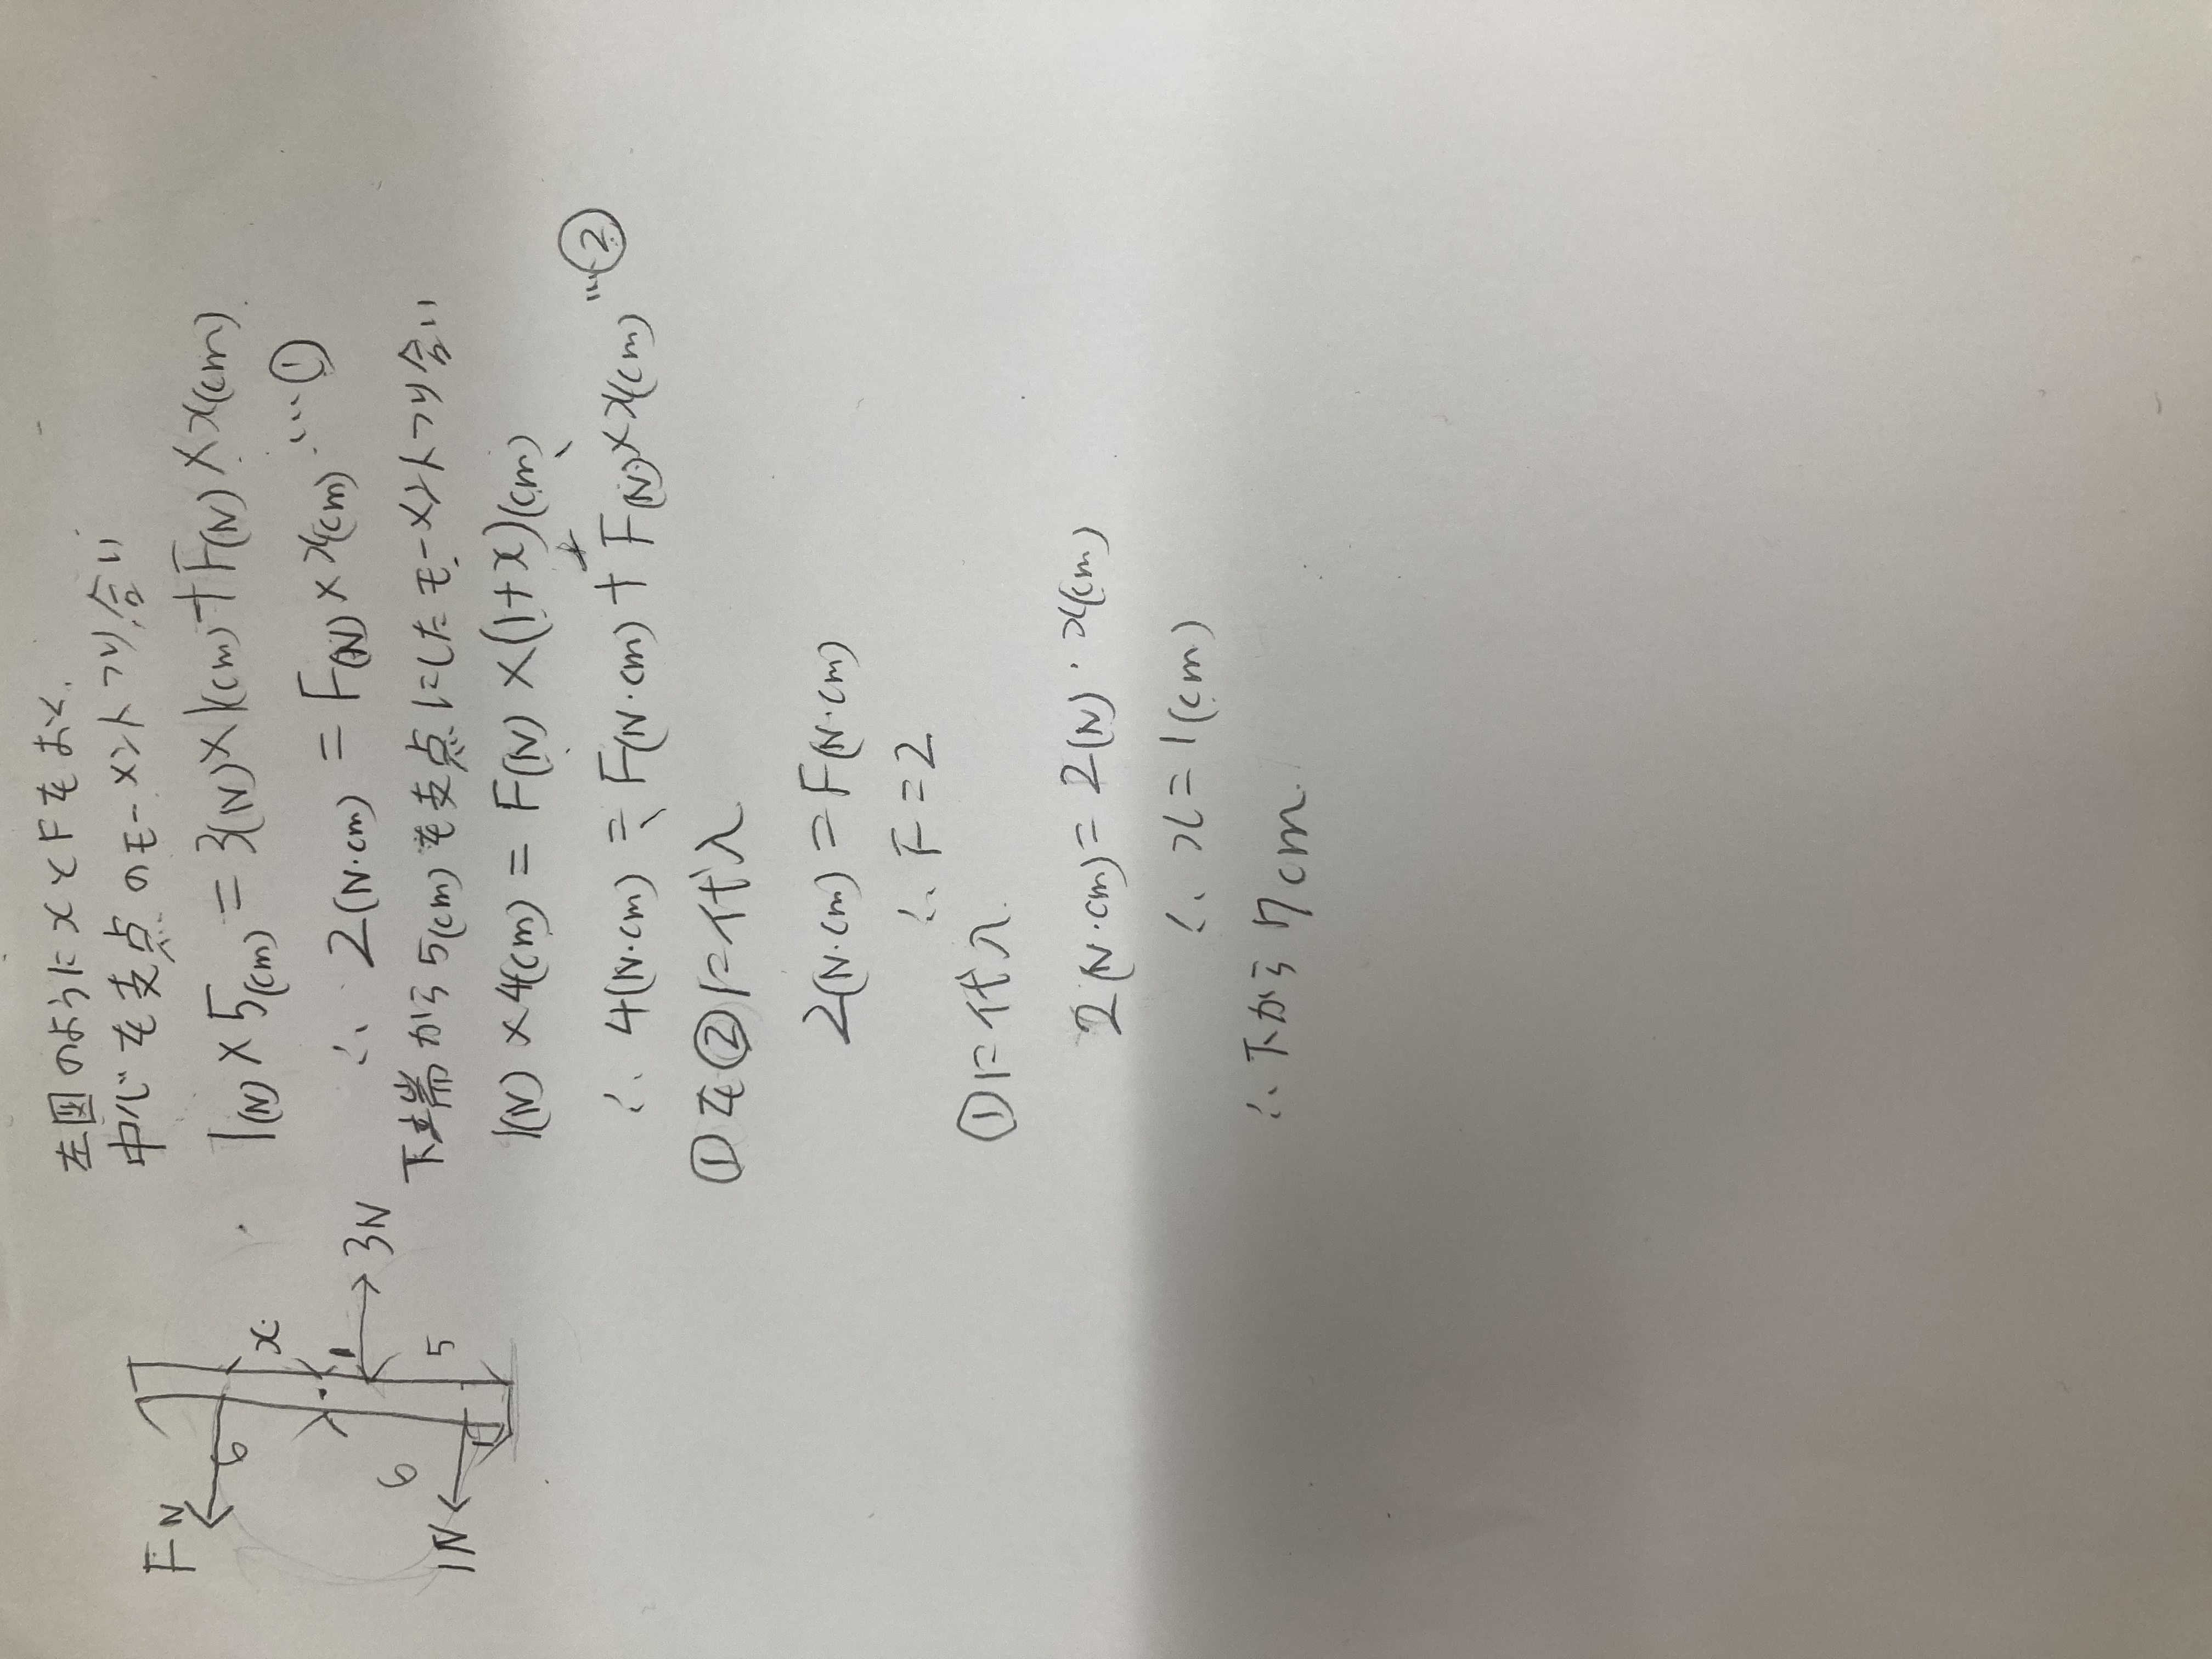 左図のようにxとFをおく.
中心を支点のモーメントつり合い
1(N)×5(cm)=3(N)×1(cm)+F(N)×x(cm)
∴ 2(N・cm)=F(N)×x(cm) …①
下端から5(cm)を支点にしたモーメントつり合い
1(N)×4(cm)=F(N)×(1+x)(cm)
∴ 4(N・cm)=F(N・cm)+F(N)×x(cm) …②
①を②に代入
2(N・cm)=F(N・cm)
∴ F=2
①に代入
2(N・cm)=2(N)・x(cm)
∴ x=1(cm)
∴ 下から7cm
FN
6
x
1
3N
6
5
1N
1